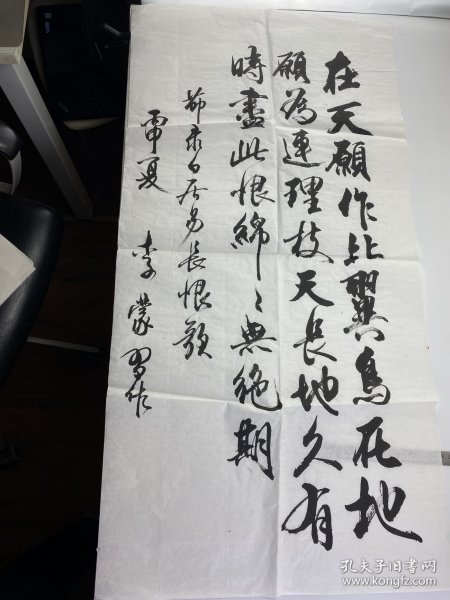 在天願作比翼鳥在地
願為連理枝天長地久有
時盡此恨綿〻無絕期
節录白居易長恨歌
甲夏 李蒙習作
孔夫子旧书网
www.kongfz.com